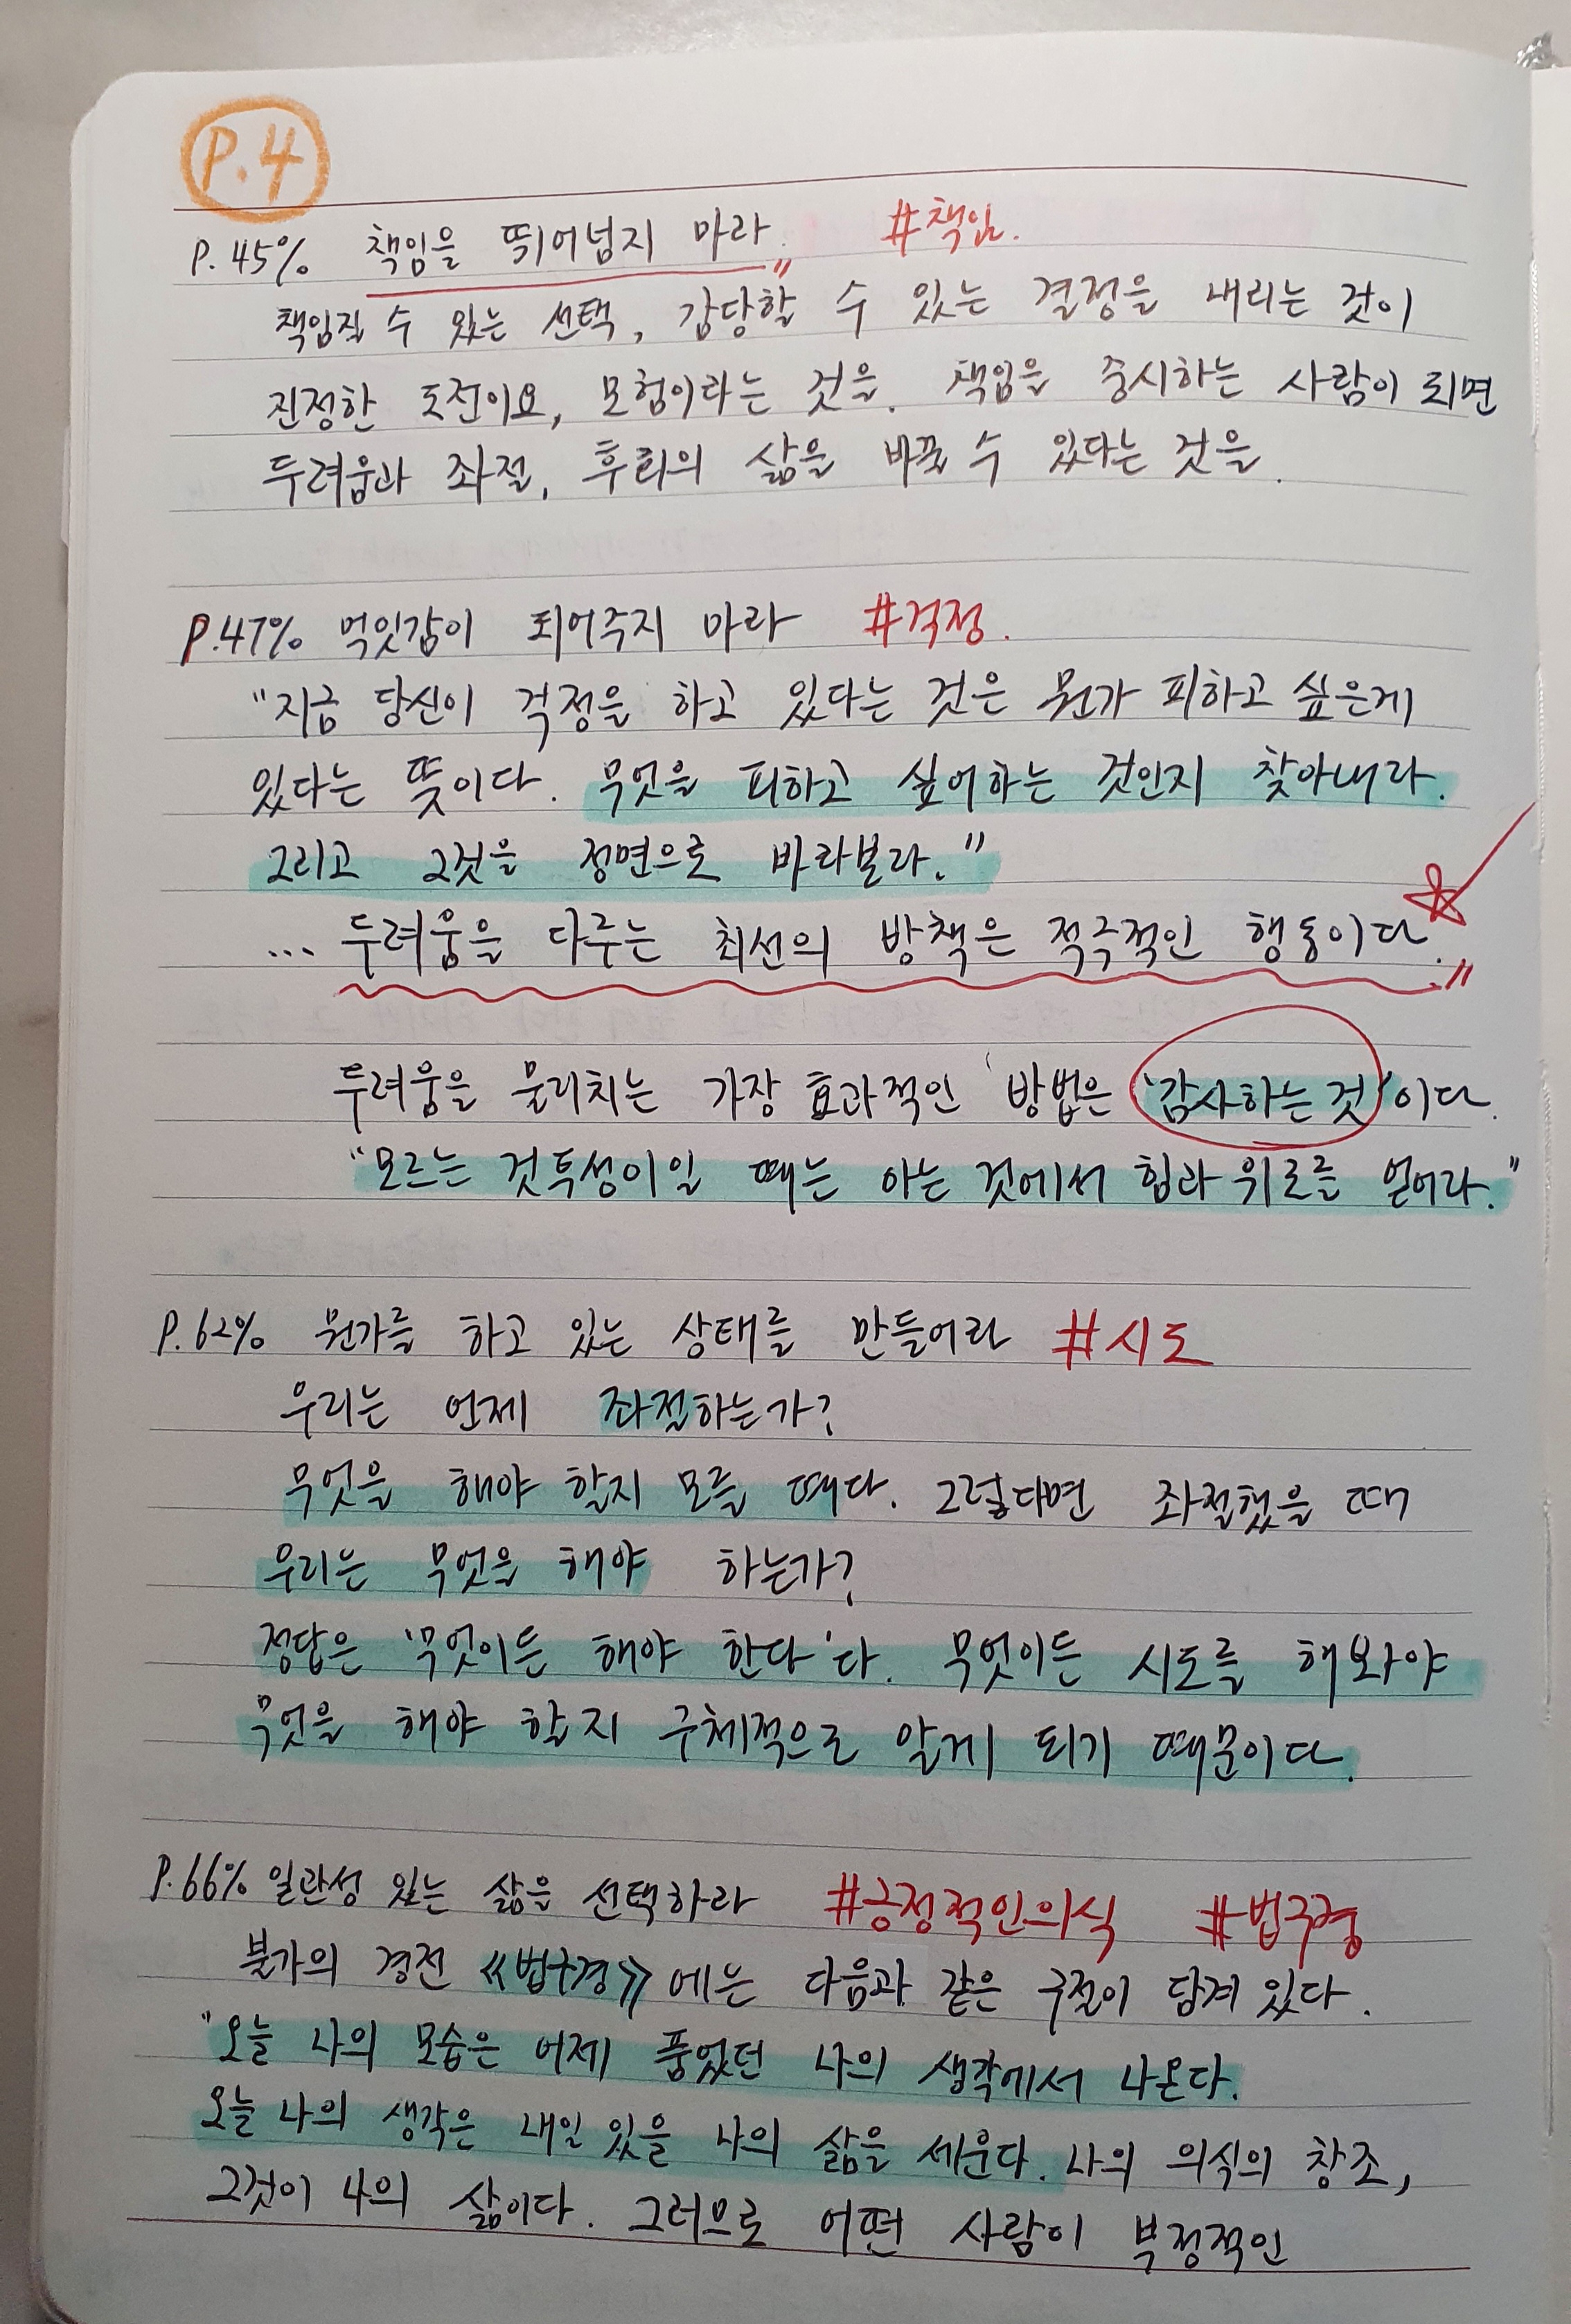 P.4
P.45% 책임을 뛰어넘지 마라. #책임.
책임질 수 있는 선택, 감당할 수 있는 결정을 내리는 것이
진정한 도전이요, 모험이라는 것을. 책임을 중시하는 사람이 되면
두려움과 좌절, 후회의 삶을 바꿀 수 있다는 것을.
P.47% 먹잇감이 되어주지 마라 #걱정.
"지금 당신이 걱정을 하고 있다는 것은 뭔가 피하고 싶은게
있다는 뜻이다. 무엇을 피하고 싶어하는 것인지 찾아내라.
그리고 그것을 정면으로 바라보라."
... 두려움을 다루는 최선의 방책은 적극적인 행동이다.
두려움을 물리치는 가장 효과적인 방법은 '감사하는 것'이다.
"모르는 것투성이일 때는 아는 것에서 힘과 위로를 얻어라."
P.62% 뭔가를 하고 있는 상태를 만들어라 #시도
우리는 언제 좌절하는가?
무엇을 해야 할지 모를 때다. 그렇다면 좌절했을 때
우리는 무엇을 해야 하는가?
정답은 '무엇이든 해야 한다'다. 무엇이든 시도를 해봐야
무엇을 해야 할지 구체적으로 알게 되기 때문이다.
P.66% 일관성 있는 삶을 선택하라 #긍정적인의식 #법구경
불가의 경전 《법구경》에는 다음과 같은 구절이 담겨 있다.
"오늘 나의 모습은 어제 품었던 나의 생각에서 나온다.
오늘 나의 생각은 내일 있을 나의 삶을 세운다. 나의 의식의 창조,
그것이 나의 삶이다. 그러므로 어떤 사람이 부정적인